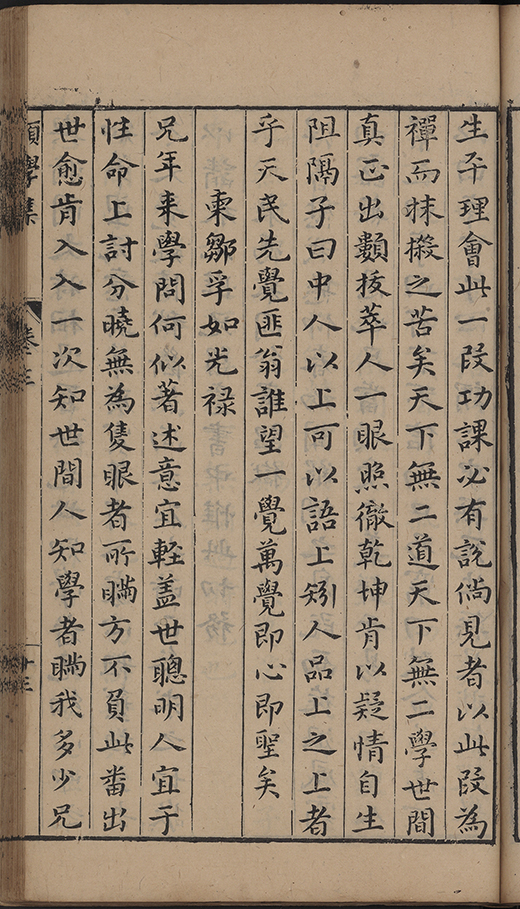 生平理會此一段功課必有說倘見者以此段為
禪而抹摋之苦矣天下無二道天下無二學世間
真正出類拔萃人一眼照徹乾坤肯以疑情自生
阻隔子曰中人以上可以語上矧人品上之上者
乎天民先覺匪翁誰望一覺萬覺即心即聖矣
柬鄒孚如光祿
兄年来學問何似著述意宜輕盖世聰明人宜于
性命上討分曉無為隻眼者所瞞方不負此番出
世愈肯入入一次知世間人知學者瞞我多少兄
願學集
卷三
十三